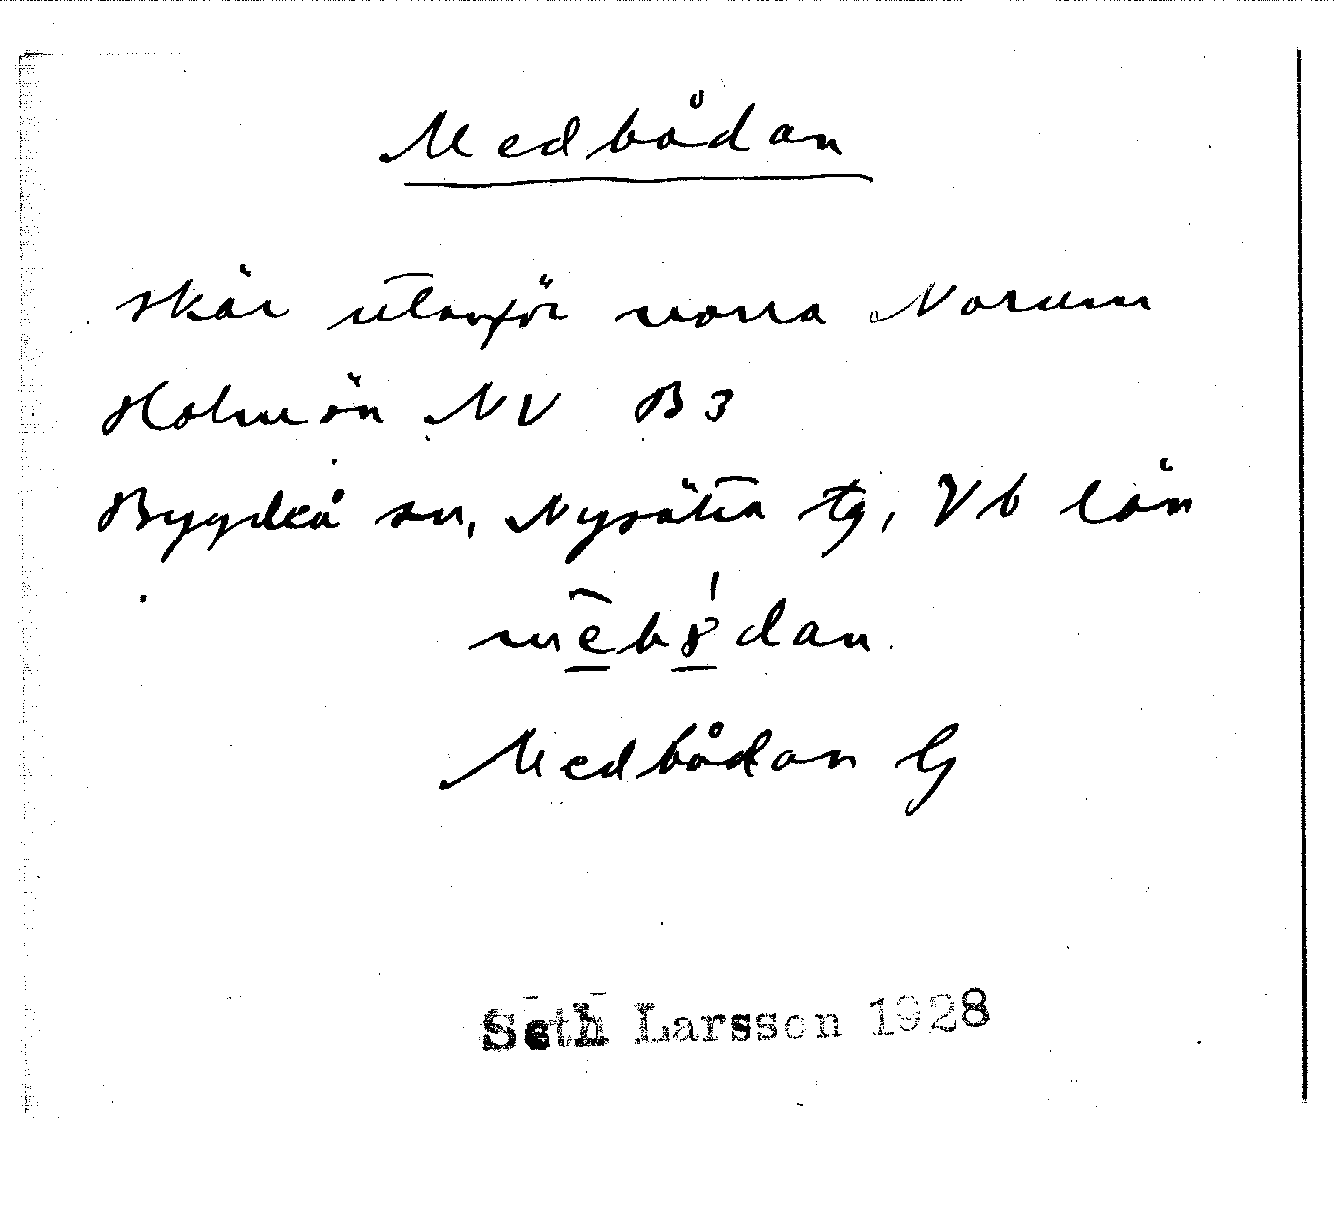 Medbådan
skär utanför norra Norum
Holmön NV B3
Bygdeå sn, Nysätra tg, Vb län
mēbo̊́dan
Medbådan G
Seth Larsson 1928